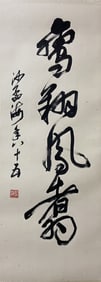 鸾翔凤翥
沙孟海年八十五